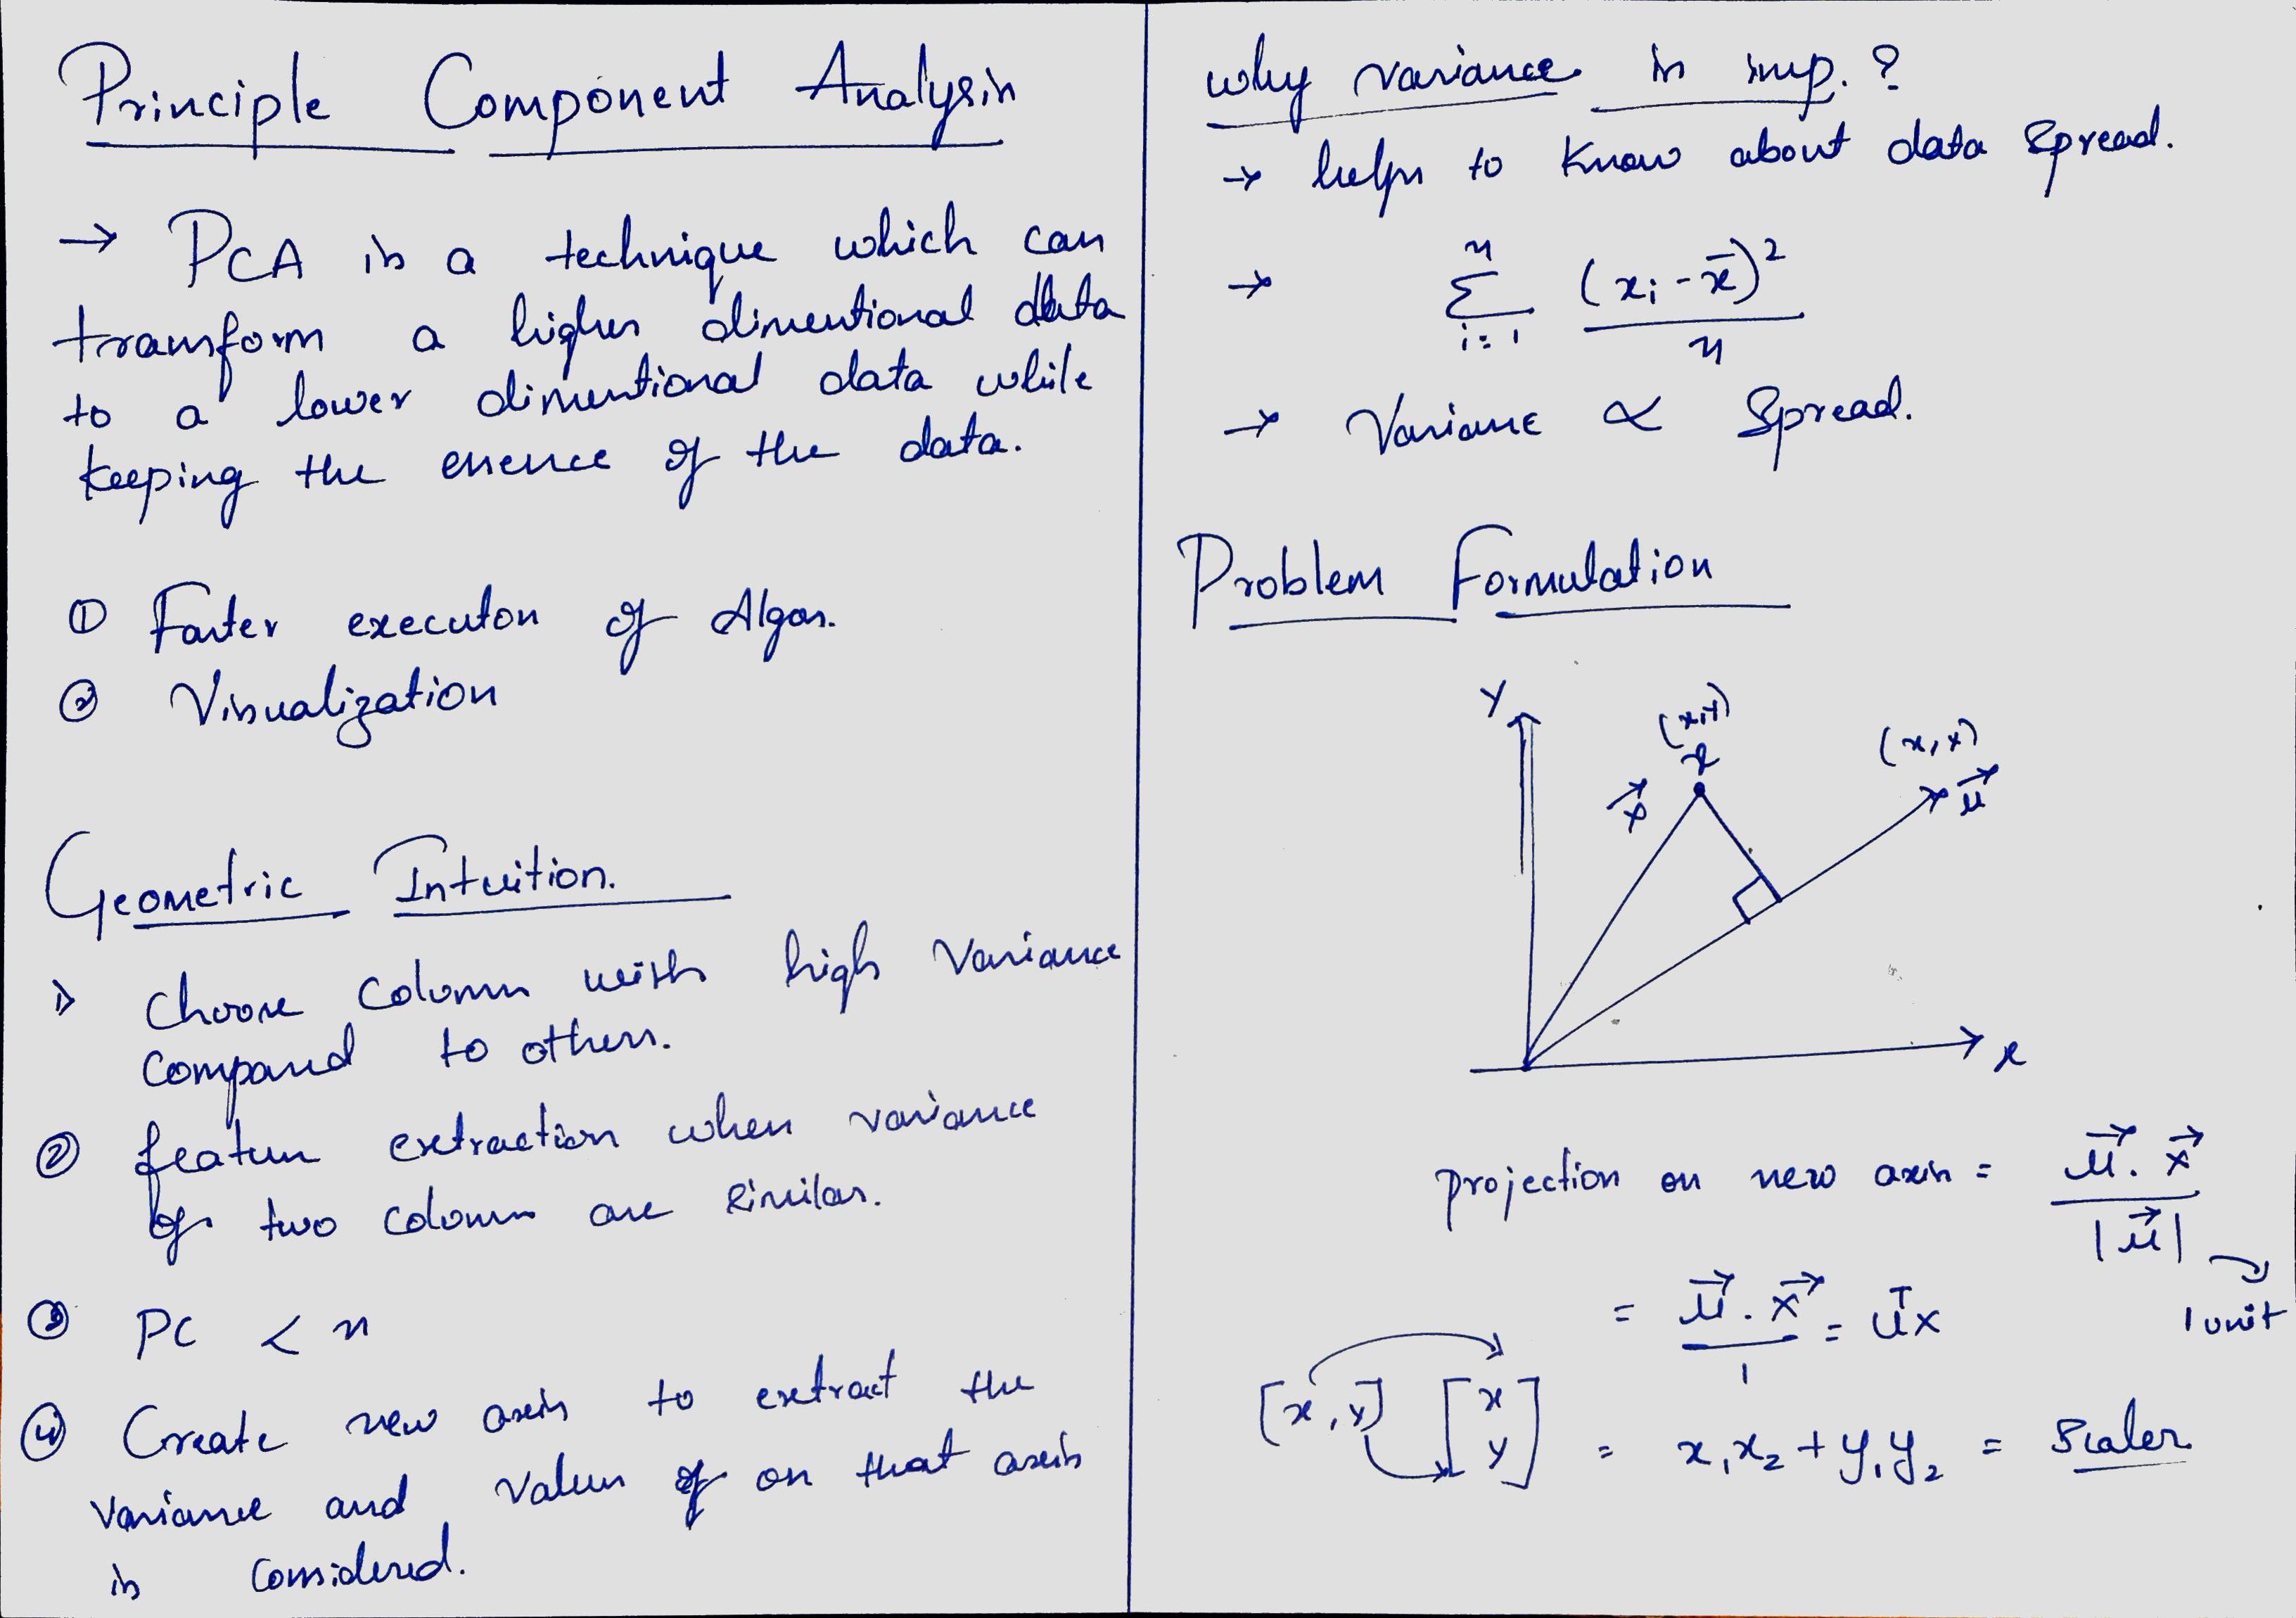 Principle Component Analysis
→ PCA is a technique which can
transform a higher dimentional data
to a lower dimentional data while
keeping the essence of the data.
① Faster executon of Algos.
② Visualization
Geometric Intuition.
1) Choose Column with high Variance
Compared to others.
② feature extraction when variance
of two column are similar.
③ PC < n
④ Create new axis to extract the
Variance and values of on that axis
is Considered.
why variance is imp.?
→ helps to Know about data Spread.
→ n Σ i=1 (xi - x̄)² / n
→ Variance ∝ Spread.
Problem Formulation
Y
(x,y)
x
(x,y)
x⃗
u⃗
x
projection on new axis = u⃗ . x⃗ / |u⃗|
1 unit
= u⃗ . x⃗ / 1 = uᵀx
[x,y] [x y] = x₁x₂ + y₁y₂ = Scaler